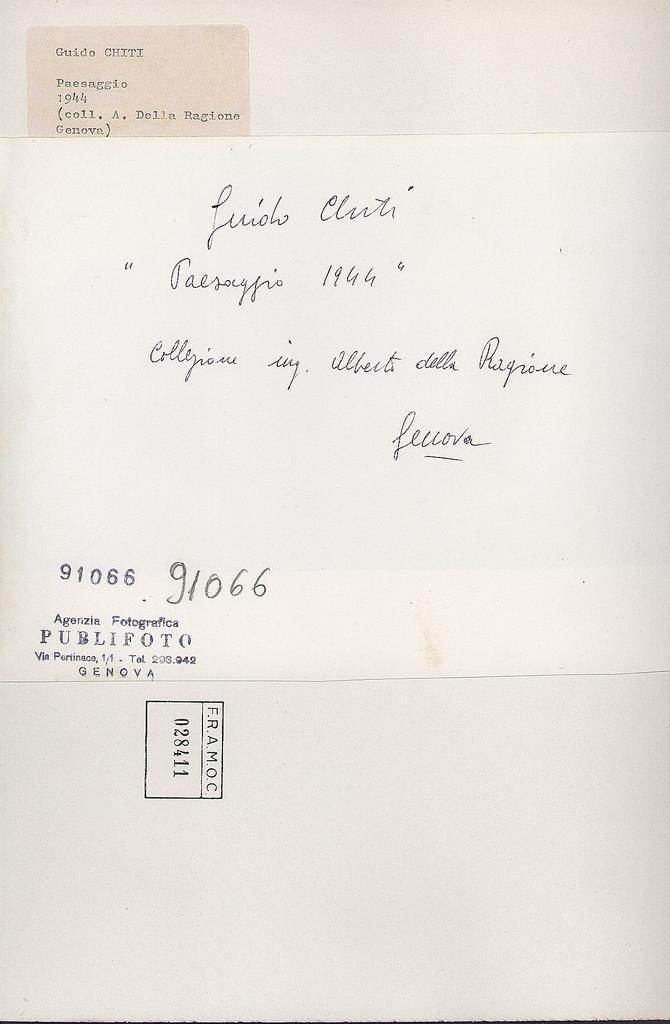 Guido CHITI
Paesaggio
1944
(coll. A. Della Ragione
Genova)
Guido Chiti
" Paesaggio 1944 "
Collezione ing. Alberto della Ragione
Genova
91066 91066
Agenzia Fotografica
PUBLIFOTO
Via Pertinace, 1/1 - Tel. 293.942
GENOVA
F.R.A.M.O.C.
028411